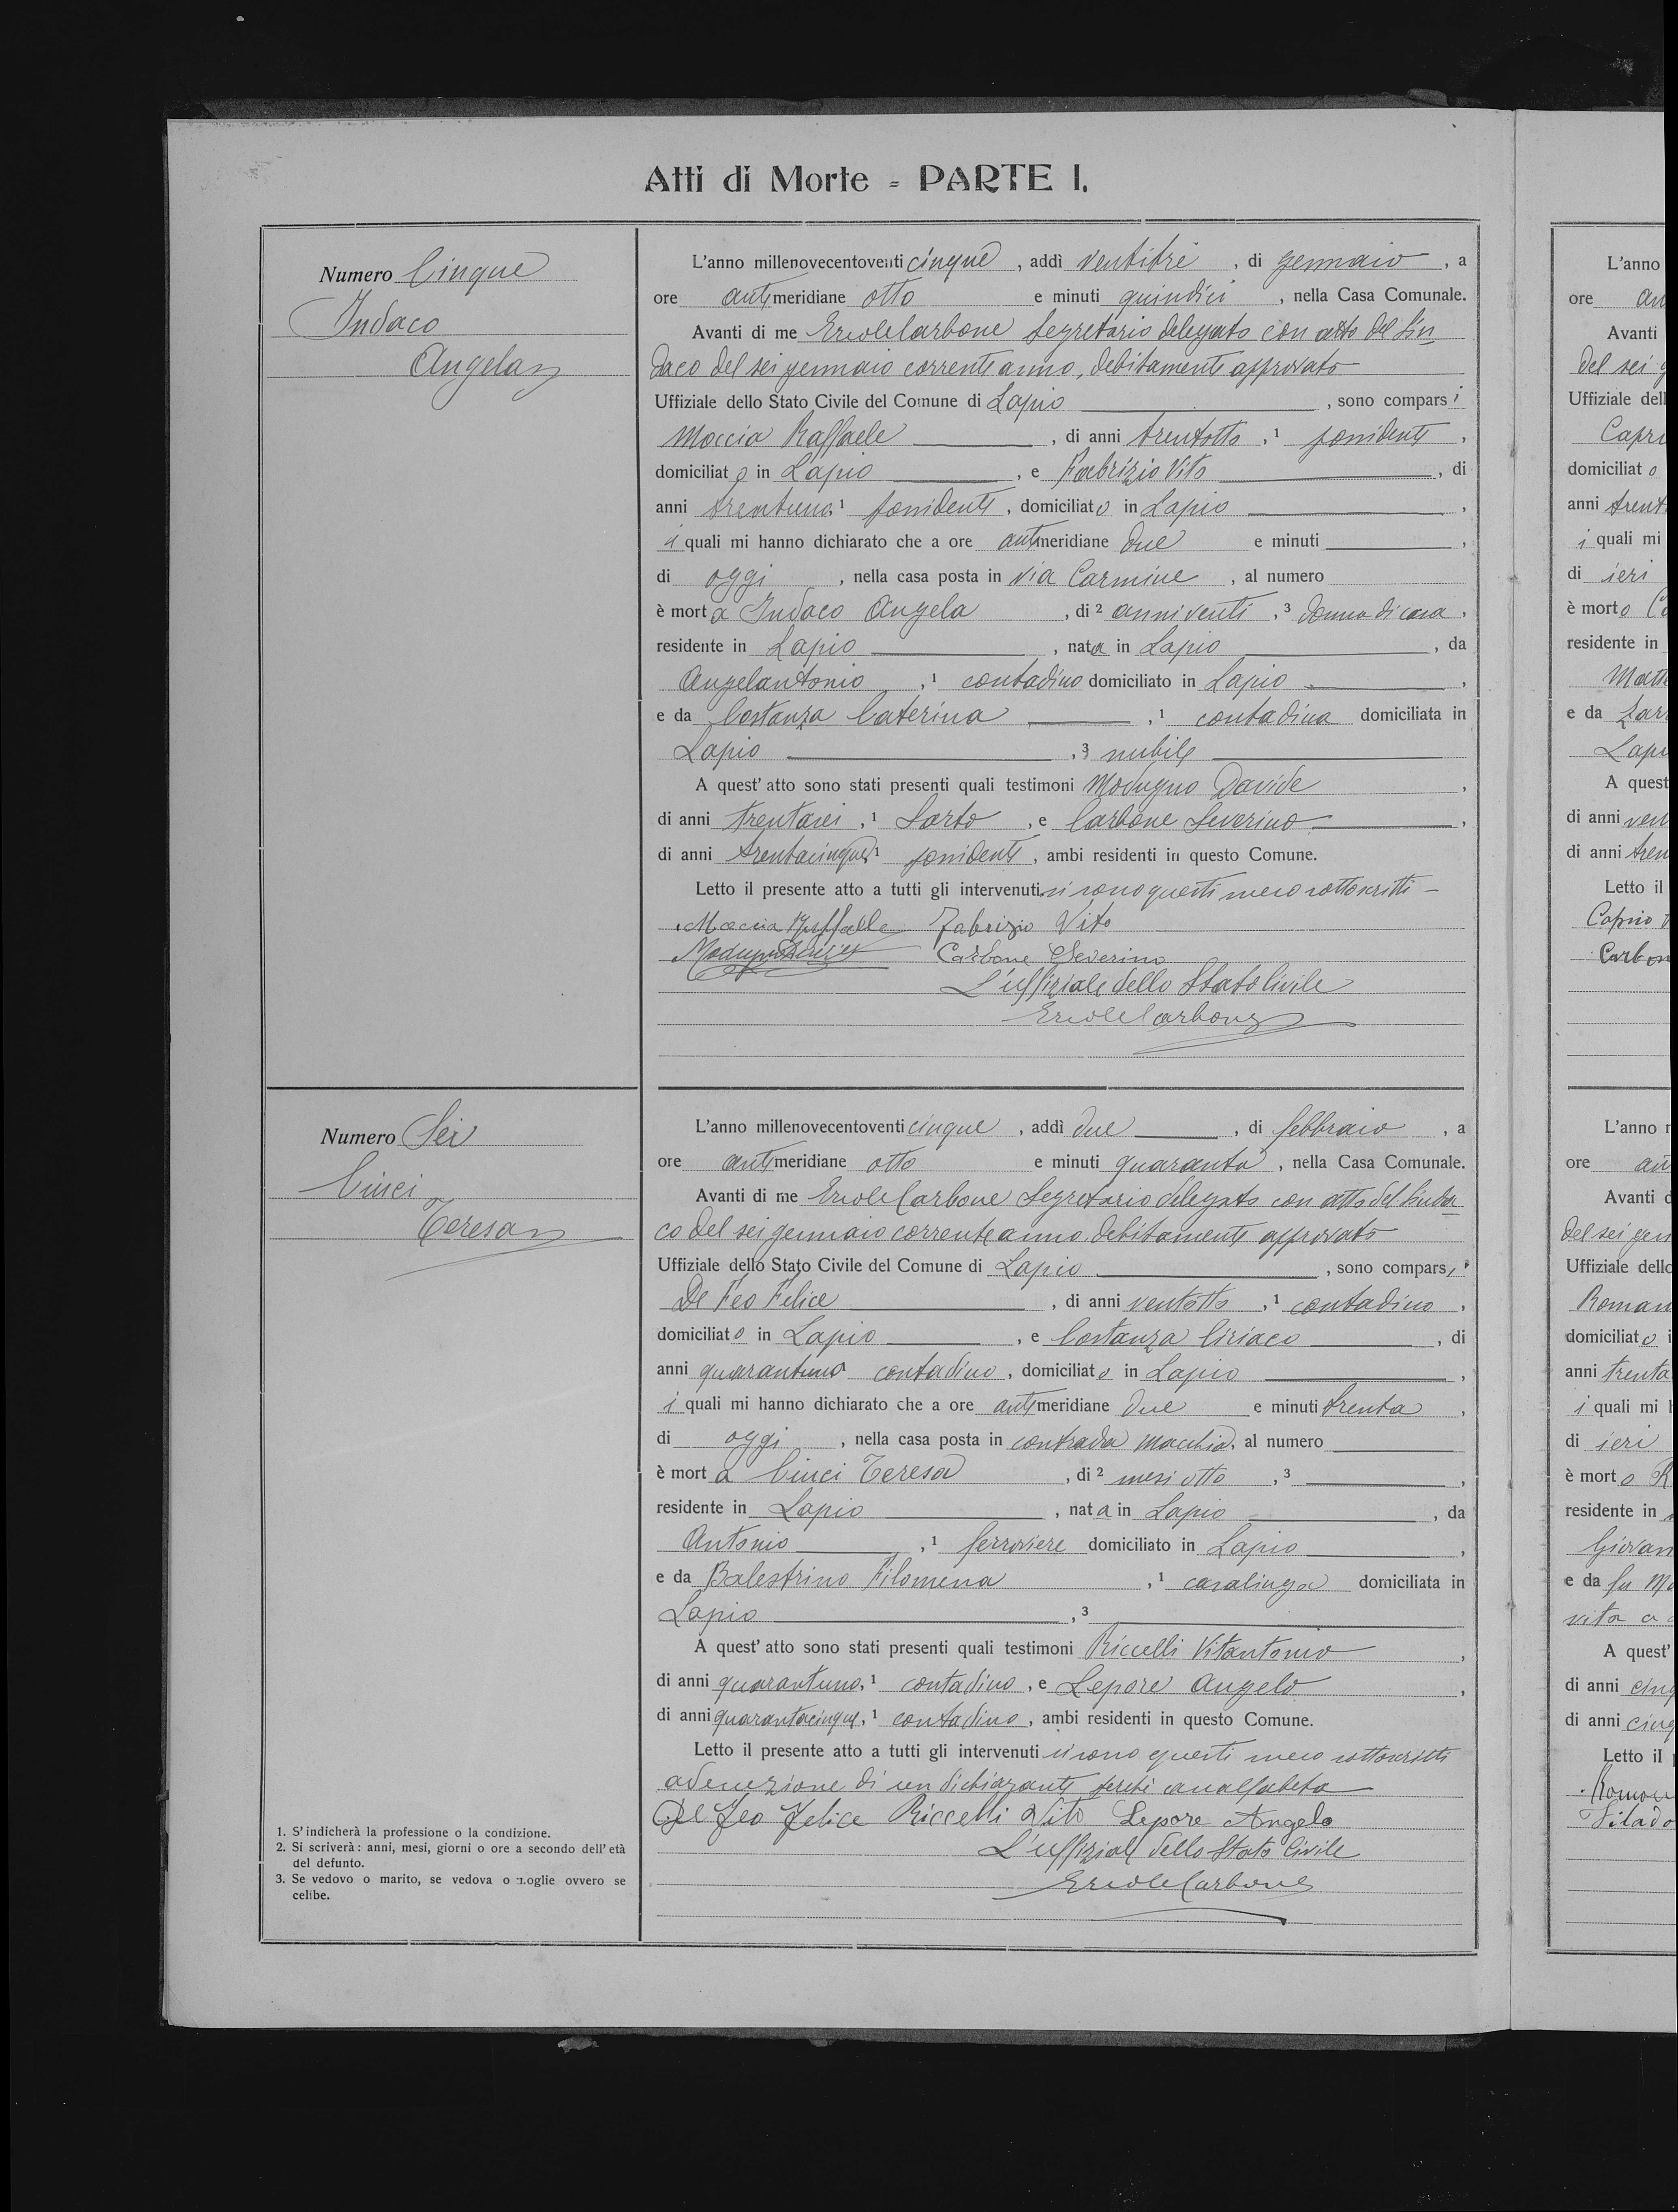 Atti di Morte - PARTE I.
Numero Cinque
Indaco
Angela
L'anno millenovecentoventi cinque, addì ventitré, di gennaio, a
ore antimeridiane otto e minuti quindici, nella Casa Comunale.
Avanti di me Ercole Carbone Segretario delegato con atto del Sin-
daco del sei gennaio corrente anno, debitamente approvato
Uffiziale dello Stato Civile del Comune di Lapio, sono comparsi
Moccia Raffaele, di anni trentotto,¹ possidente,
domiciliato in Lapio, e Fabrizio Vito, di
anni trentuno,¹ possidente, domiciliato in Lapio,
i quali mi hanno dichiarato che a ore antimeridiane due e minuti,
di oggi, nella casa posta in via Carmine, al numero
è morta Indaco Angela, di² anni venti,³ donna di casa,
residente in Lapio, nata in Lapio, da
Angelantonio,¹ contadino domiciliato in Lapio,
e da Costanza Caterina,¹ contadina domiciliata in
Lapio,³ nubile
A quest' atto sono stati presenti quali testimoni Modugno Davide,
di anni trentasei,¹ Sarto, e Carbone Severino,
di anni trentacinque,¹ possidente, ambi residenti in questo Comune.
Letto il presente atto a tutti gli intervenuti si sono questi meco sottoscritti -
Moccia Raffaele Fabrizio Vito
Modugno Davide Carbone Severino
L'uffiziale dello Stato Civile
Ercole Carbone
Numero Sei
Cinci
Teresa
L'anno millenovecentoventi cinque, addì due, di febbraio, a
ore antimeridiane otto e minuti quaranta, nella Casa Comunale.
Avanti di me Ercole Carbone Segretario delegato con atto del Sinda-
co del sei gennaio corrente anno, debitamente approvato
Uffiziale dello Stato Civile del Comune di Lapio, sono comparsi
De Feo Felice, di anni ventotto,¹ contadino,
domiciliato in Lapio, e Costanza Ciriaco, di
anni quarantuno contadino, domiciliato in Lapio,
i quali mi hanno dichiarato che a ore antimeridiane due e minuti trenta,
di oggi, nella casa posta in contrada Macchia, al numero
è morta Cinci Teresa, di² mesi otto,³
residente in Lapio, nata in Lapio, da
Antonio,¹ ferroviere domiciliato in Lapio,
e da Balestrino Filomena,¹ casalinga domiciliata in
Lapio,³
A quest' atto sono stati presenti quali testimoni Riccelli Vitantonio,
di anni quarantuno,¹ contadino, e Lepore Angelo,
di anni quarantacinque,¹ contadino, ambi residenti in questo Comune.
Letto il presente atto a tutti gli intervenuti si sono questi meco sottoscritti
ad eccezione di un dichiarante perché analfabeta
De Feo Felice Riccelli Vito Lepore Angelo
L'uffiziale dello Stato Civile
Ercole Carbone
1. S' indicherà la professione o la condizione.
2. Si scriverà: anni, mesi, giorni o ore a secondo dell' età
del defunto.
3. Se vedovo o marito, se vedova o moglie ovvero se
celibe.
L'anno
ore
Avanti
del sei
Uffiziale dell
domiciliato
anni trent
i quali mi
di ieri
è morto
residente in
e da
A quest
di anni
di anni
Letto il
L'anno
ore
Avanti
del sei gen
Uffiziale dello
Roman
domiciliato
anni trenta
i quali mi
di ieri
è morto
residente in
Giovan
e da fu
vita
A quest'
di anni
di anni
Letto il